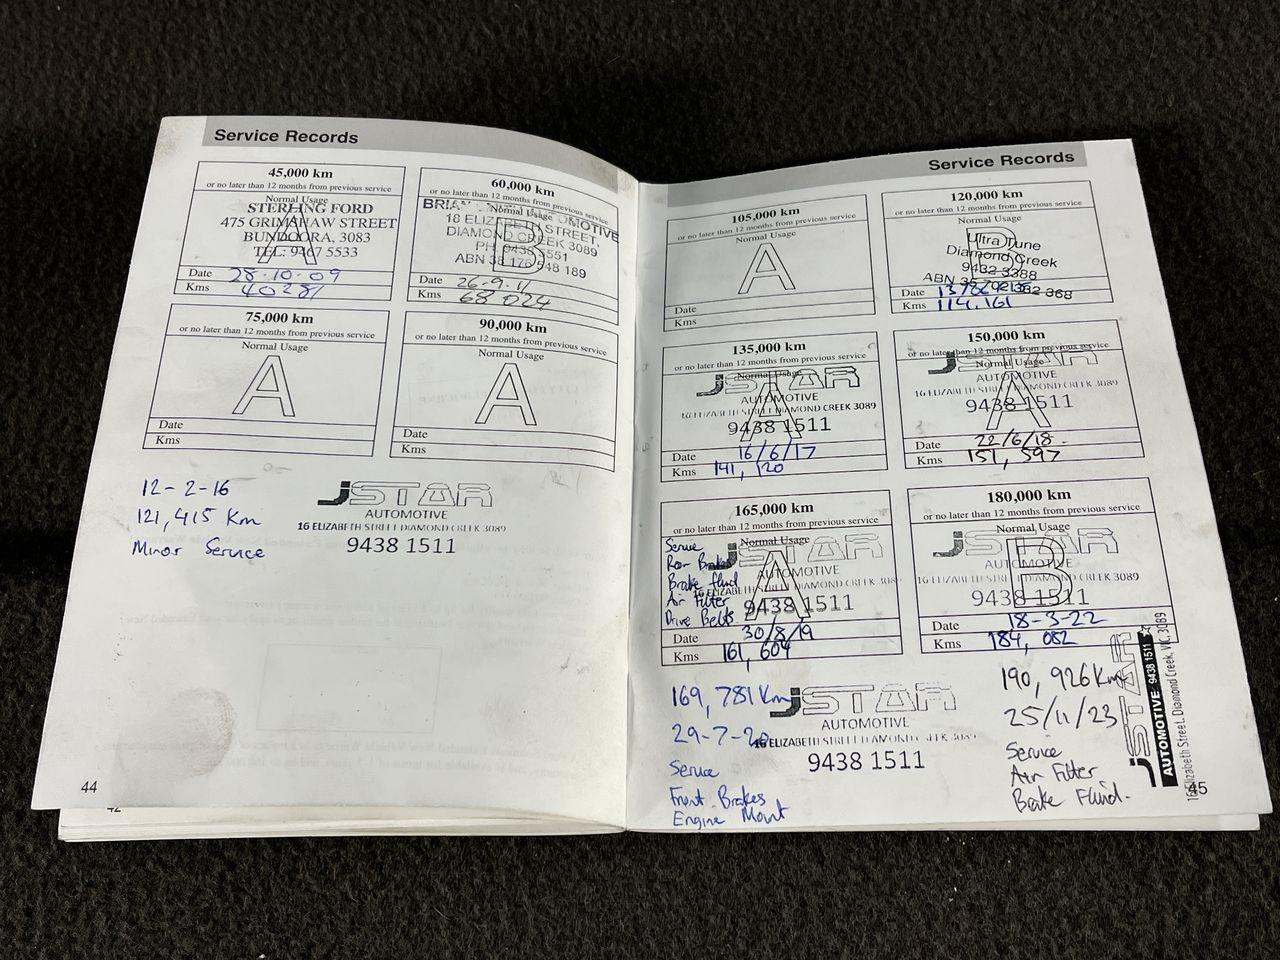 Service Records
45,000 km
or no later than 12 months from previous service
Normal Usage
STERLING FORD
475 GRIMSHAW STREET
BUNDOORA, 3083
TEL: 9467 5533
A
Date 28.10.09
Kms 40281
60,000 km
or no later than 12 months from previous service
Normal Usage
BRIAN AUTOMOTIVE
18 ELIZABETH STREET,
DIAMOND CREEK 3089
PH 9438 5551
ABN 38 176 548 189
B
Date 26.9.11
Kms 68024
75,000 km
or no later than 12 months from previous service
Normal Usage
A
Date
Kms
90,000 km
or no later than 12 months from previous service
Normal Usage
A
Date
Kms
12-2-16
121,415 Km
Minor Service
JSTAR
AUTOMOTIVE
16 ELIZABETH STREET DIAMOND CREEK 3089
9438 1511
44
42
Service Records
105,000 km
or no later than 12 months from previous service
Normal Usage
A
Date
Kms
120,000 km
or no later than 12 months from previous service
Normal Usage
Ultra Tune
Diamond Creek
9432 3388
ABN 368
B
Date
Kms 114,161
135,000 km
or no later than 12 months from previous service
Normal Usage
JSTAR
AUTOMOTIVE
16 ELIZABETH STREET DIAMOND CREEK 3089
9438 1511
A
Date 16/6/17
Kms 141,120
150,000 km
or no later than 12 months from previous service
Normal Usage
JSTAR
AUTOMOTIVE
16 ELIZABETH STREET DIAMOND CREEK 3089
9438 1511
A
Date 22/6/18
Kms 151,597
165,000 km
or no later than 12 months from previous service
Normal Usage
Service
Rear Brakes
Brake fluid
Air Filter
Drive Belts
JSTAR
AUTOMOTIVE
16 ELIZABETH STREET DIAMOND CREEK 3089
9438 1511
A
Date 30/8/19
Kms 161,604
180,000 km
or no later than 12 months from previous service
Normal Usage
JSTAR
AUTOMOTIVE
16 ELIZABETH STREET DIAMOND CREEK 3089
9438 1511
B
Date 18-3-22
Kms 184,082
169,781 Km
29-7-20
Service
Front Brakes
Engine Mount
JSTAR
AUTOMOTIVE
16 ELIZABETH STREET DIAMOND CREEK 3089
9438 1511
190,926 Km
25/11/23
Service
Air Filter
Brake Fluid.
JSTAR
AUTOMOTIVE 9438 1511
16 Elizabeth Street, Diamond Creek, VIC 3089
45